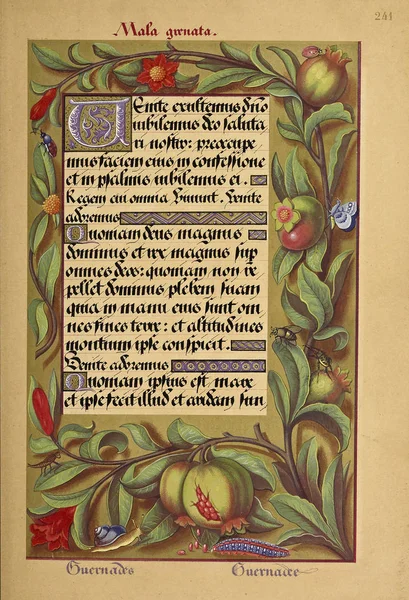 241
Mala grenata.
Venite exultemus dn̄o
iubilemus deo saluta
ri nostro: preocupe
mus faciem eius in confessione
et in psalmis iubilemus ei.
Regem cui omnia vivunt. Venite
adoremus
Quoniam deus magnus
dominus et rex magnus sup
omnes deos: quoniam non re
pellet dominus plebem suam
quia in manu eius sunt om
nes fines terre: et altitudines
montium ipse conspicit.
Venite adoremus
Quoniam ipsius est mare
et ipse fecit illud et aridam fun
Guernades Guernadee